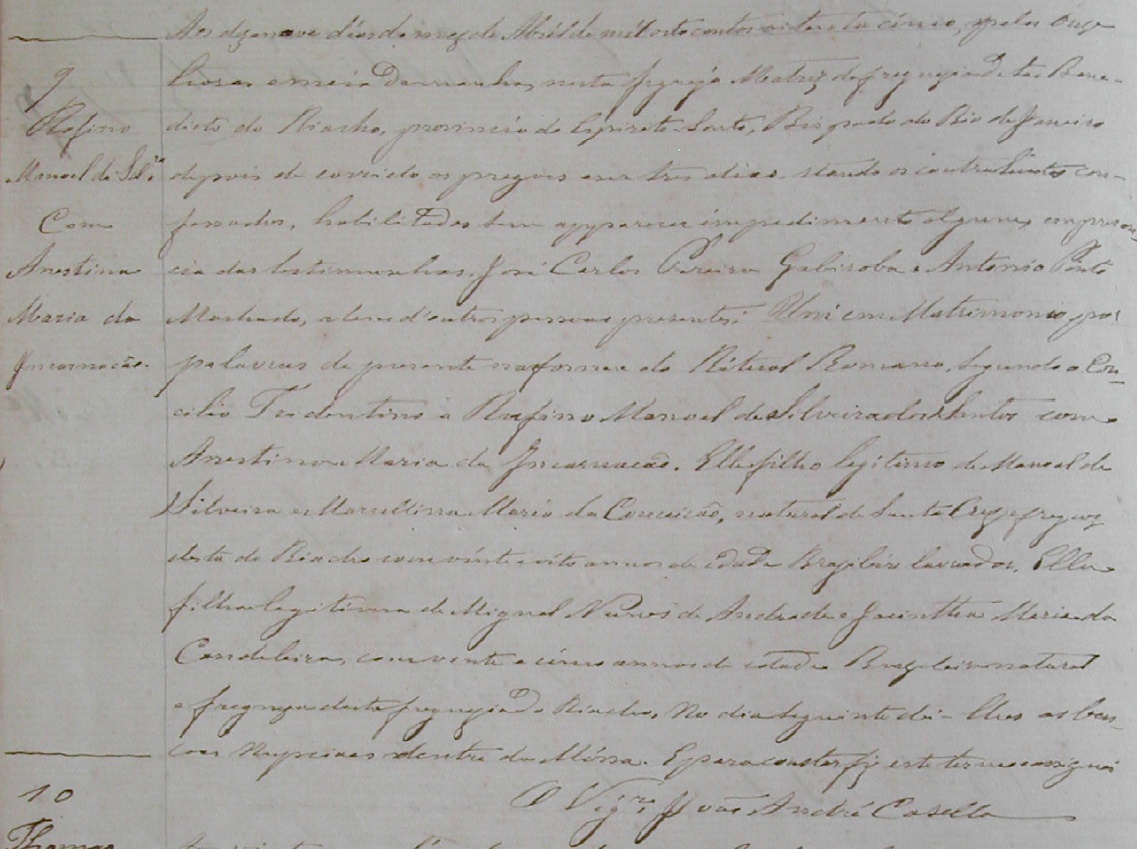 Aos dezanove dias do mez de Abril de mil oito centos oitenta cinco, pelas onze
9
horas e meia da manha, nesta Igreja Matriz da freguezia de São Bene-
Rofino
dicto do Riacho, provincia do Espirito-Santo, Bispado do Rio de Janeiro
Manoel da Silvᵃ
depois de corrido os pregoes em tres dias stando os contrahentes con-
Com
fessados, habilitados sem apparecer impedimento algum, em presen-
Anestina
cia das testimunhas, José Carlos Pereira Gabiroba e Antonio Pinto
Maria da
Machado, alem d'outras pessoas presentes; Uni em Matrimonio, por
Incarnacão.
palavras de presente na forma do Ritual Romano, segundo o Con-
cilio Tridentino a Rufino Manoel de Silveira dos Santos com
Anestina Maria da Incarnacão. Elle filho legitimo de Manoel da
Silveira e Marcellina Maria da Conceicão, natural de Santa Cruz e freguez
desta do Riacho com vinte oito annos de edade Brazileiro lavrador. Ella
filha legitima de Miguel Nunes de Andrade e Jacintha Maria da
Candeleira, com vinte e cinco annos de edade Brazileira natural
e fregueza desta freguezia do Riacho, No dia seguinte dei-lhes as ben-
coes Nupciaes dentro da Missa. E para constar fiz este termo e assignei
O Vigʳᵒ João André Casella
10
Thomas